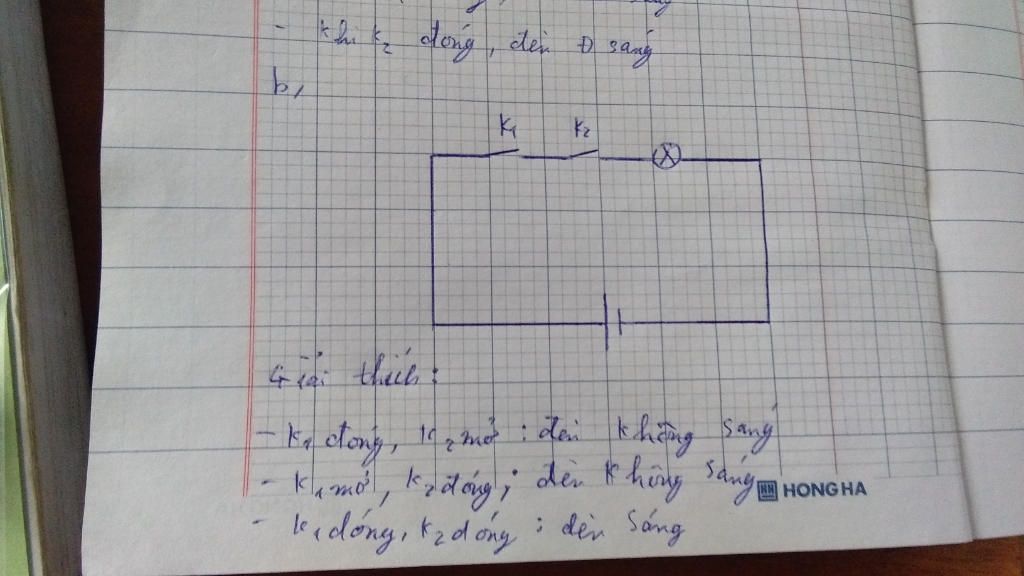 - Khi K₂ đóng, đèn Đ sáng
b,
K₁ K₂
Giải thích:
- K₁ đóng, K₂ mở : đèn không sáng
- K₁ mở, K₂ đóng; đèn không sáng
HONG HA
- K₁ đóng, K₂ đóng : đèn sáng